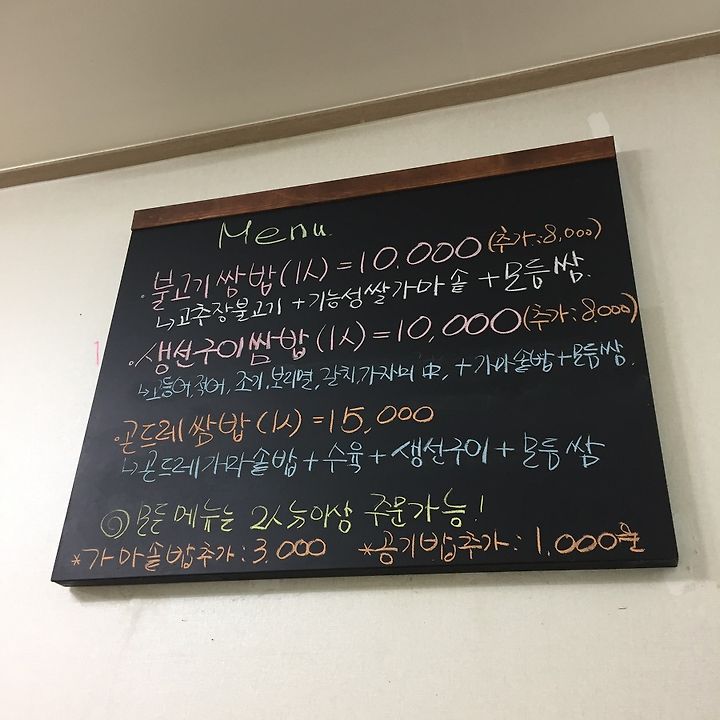 Menu
·불고기쌈밥(1人)=10.000(추가:8,000)
↳고추장불고기+기능성쌀가마솥+모듬쌈.
·생선구이쌈밥(1人)=10,000(추가:8.000)
↳고등어,적어,조기,보리멸,갈치,가자미 中,+가마솥밥+모듬쌈.
·곤드레쌈밥(1人)=15,000
↳곤드레가마솥밥+수육+생선구이+모듬쌈
◎모든메뉴는 2人이상 주문가능!
*가마솥밥추가:3.000 *공기밥추가:1.000원